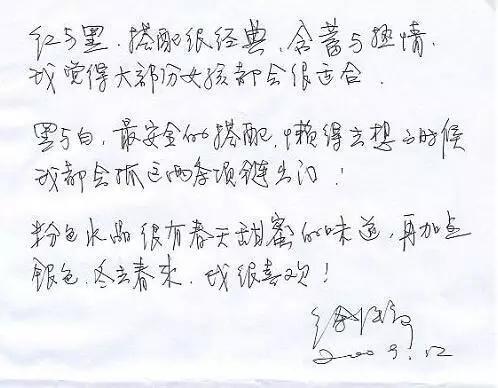 红与黑，搭配很经典，含蓄与热情，
我觉得大部份女孩都会很适合．
黑与白，最安全的搭配，懒得去想的时候
我都会抓这两条项链出门！
粉色水晶很有春天甜蜜的味道，再加点
银色，冬去春来，我很喜欢！
2009.12